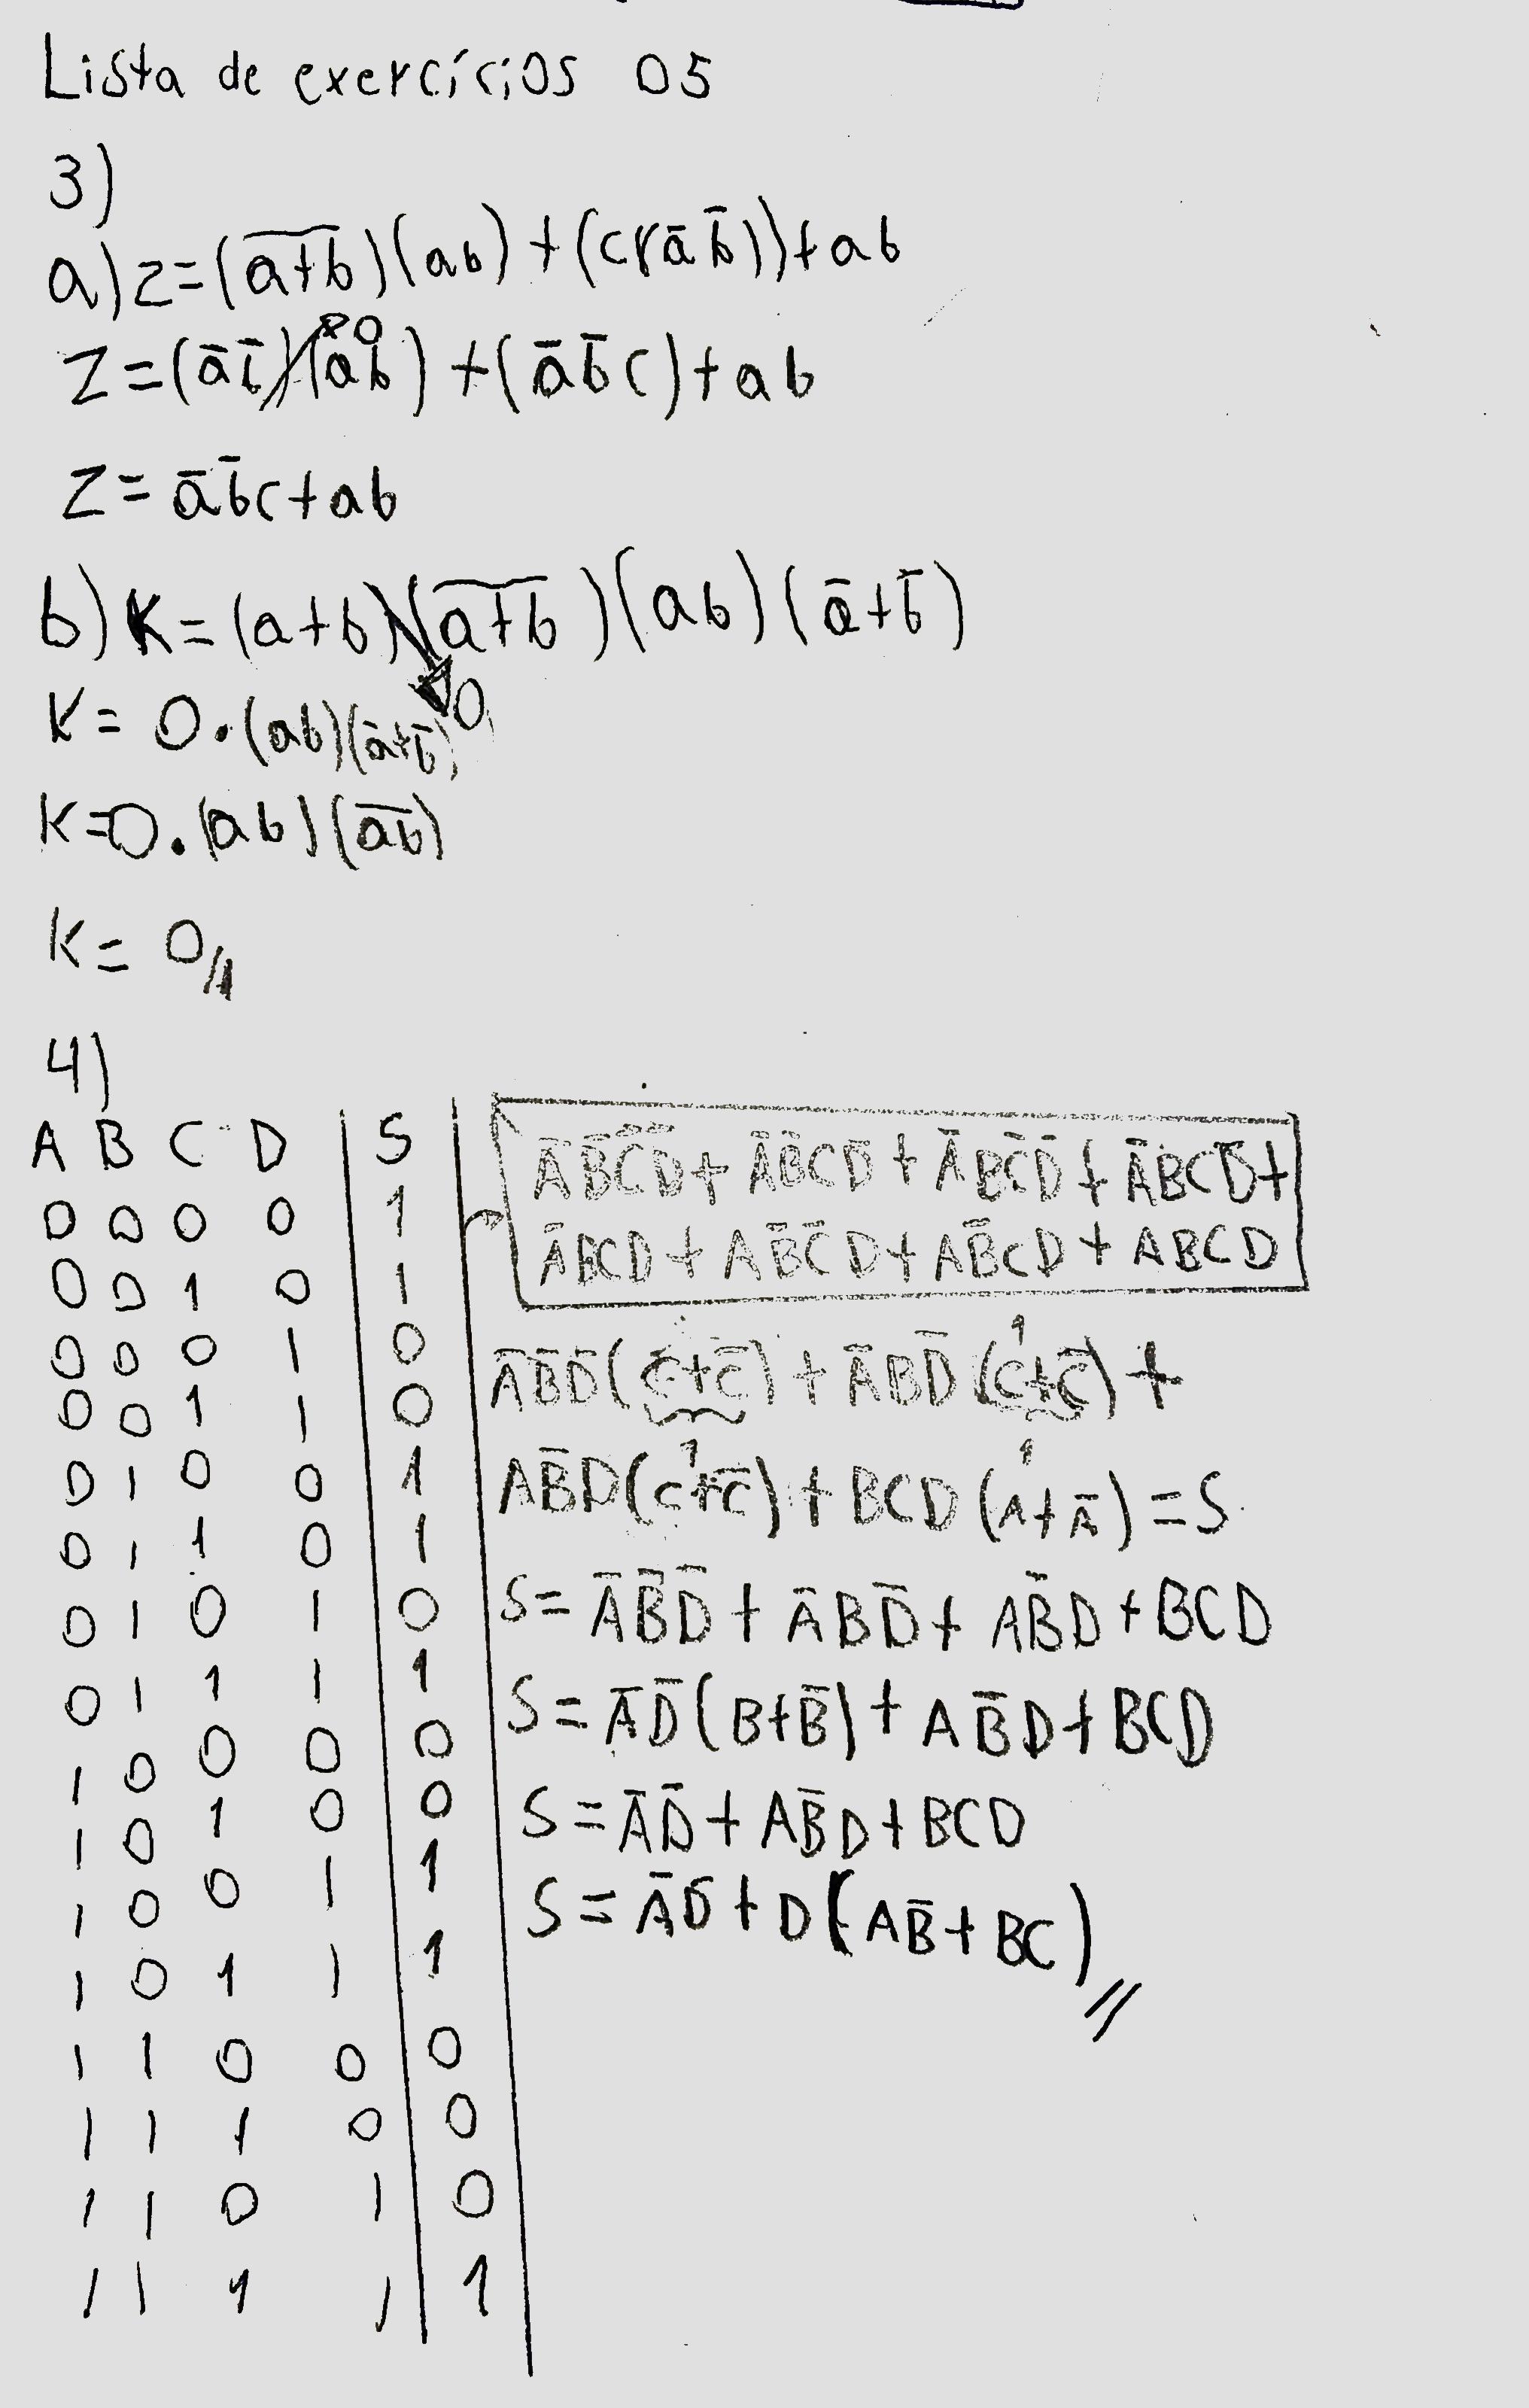 Lista de exercícios 05
3)
a) z=(a̅+̅b̅)(ab)+(c(āb̄))+ab
Z=(āb̄)(ab)+(āb̄c)+ab
0
Z=āb̄c+ab
b) K=(a+b)(a̅+̅b̅)(ab)(ā+b̄)
0
K= 0.(ab)(ā+b̄)
K=0.(ab)(a̅b̅)
K= 0//
4)
A B C D | S
0 0 0 0 | 1
0 0 1 0 | 1
0 0 0 1 | 0
0 0 1 1 | 0
0 1 0 0 | 1
0 1 1 0 | 1
0 1 0 1 | 0
0 1 1 1 | 1
1 0 0 0 | 0
1 0 1 0 | 0
1 0 0 1 | 1
1 0 1 1 | 1
1 1 0 0 | 0
1 1 1 0 | 0
1 1 0 1 | 0
1 1 1 1 | 1
ĀB̄C̄D̄+ĀB̄CD̄+ĀBC̄D̄+ĀBCD̄+
ĀBCD+AB̄C̄D+AB̄CD+ABCD
1
ĀB̄D̄(C+C̄)+ĀBD̄(C+C̄)+
1 1
AB̄D(C+C̄)+BCD(A+Ā)=S
S=ĀB̄D̄+ĀBD̄+AB̄D+BCD
S=ĀD̄(B+B̄)+AB̄D+BCD
S=ĀD̄+AB̄D+BCD
S=ĀD̄+D(AB̄+BC)//